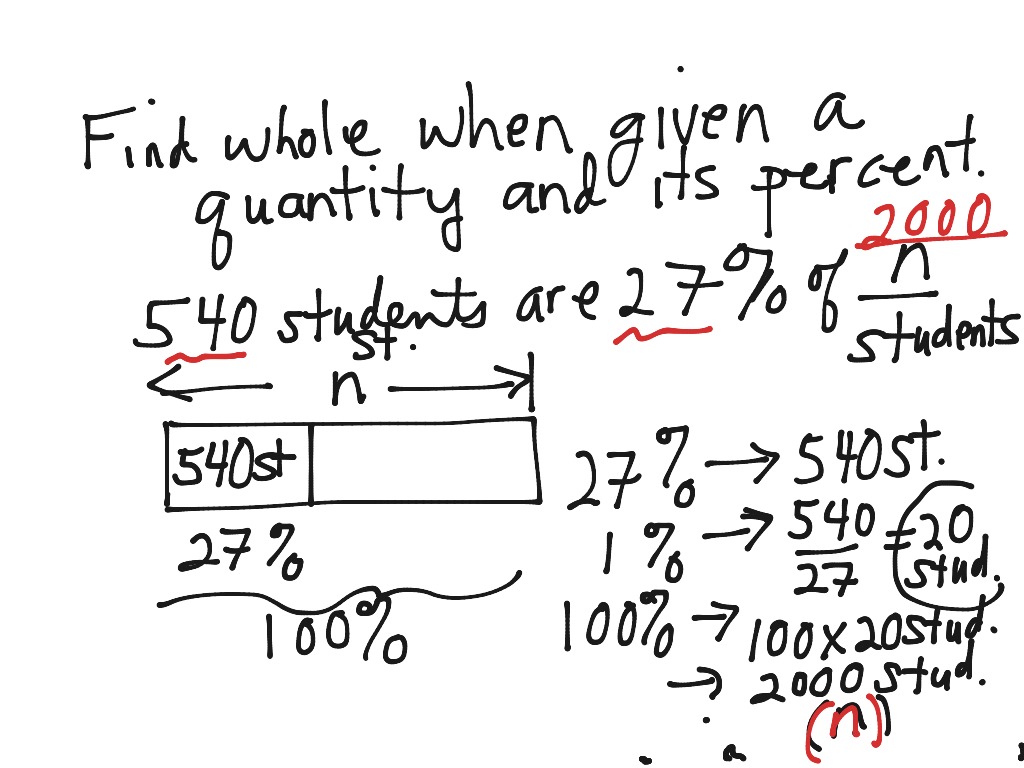 Find whole when given a
quantity and its percent.
2000
540 students are 27% of n
students
st.
n
540st
27%
100%
27% → 540st.
1% → 540/27 = 20 stud.
100% → 100x20stud.
→ 2000 stud.
(n)